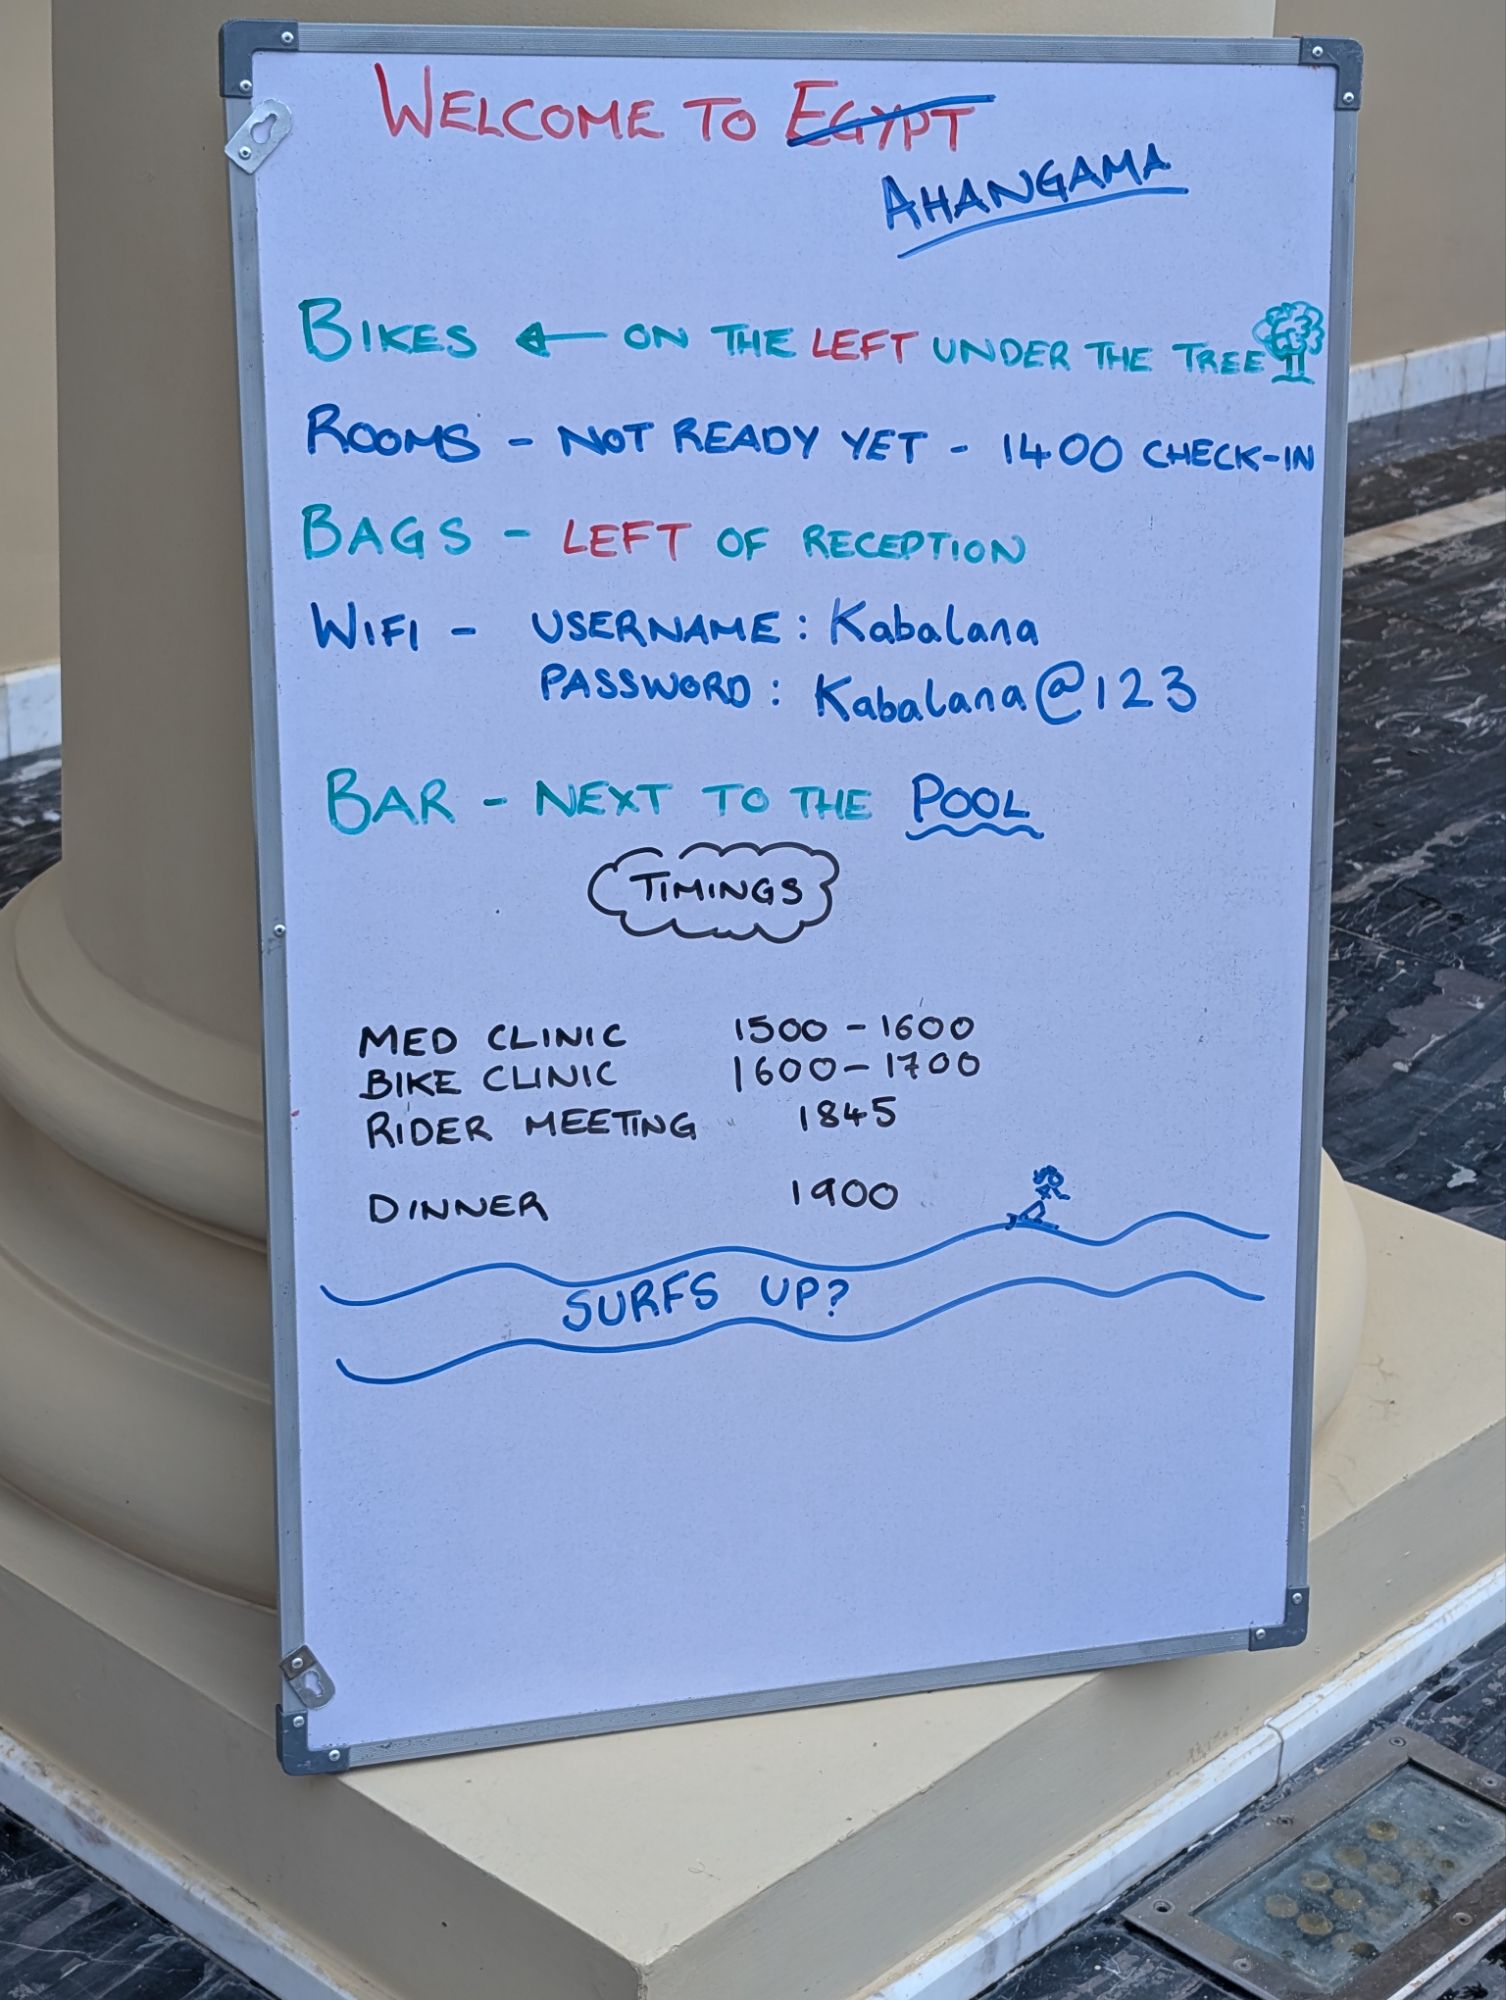 WELCOME TO EGYPT
AHANGAMA
BIKES ← ON THE LEFT UNDER THE TREE
ROOMS - NOT READY YET - 1400 CHECK-IN
BAGS - LEFT OF RECEPTION
WIFI - USERNAME: Kabalana
PASSWORD: Kabalana@123
BAR - NEXT TO THE POOL
TIMINGS
MED CLINIC 1500 - 1600
BIKE CLINIC 1600 - 1700
RIDER MEETING 1845
DINNER 1900
SURFS UP?